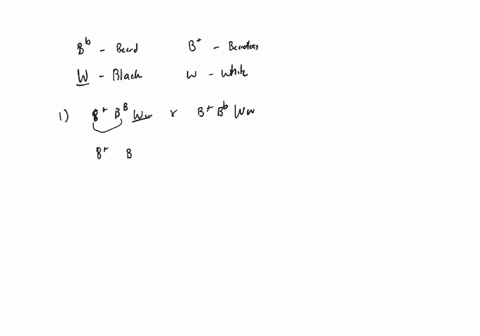 B^b - Beard B^+ - Beardless
W - Black w - white
1) B^+ B^B Ww x B^+ B^b Ww
B^+ B